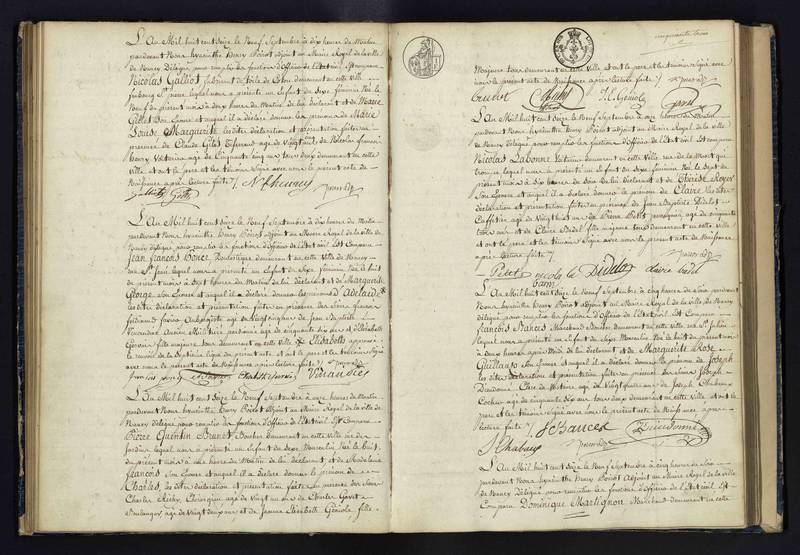 L'An Mil huit cent Seize le Neuf Septembre à dix heures du Matin
pardevant Nous hyacinthe Henry Poirot adjoint au Maire Royal de la ville
de Nancy Délégué pour remplir les fonctions d'Officier de l'état civil Est comparu
Nicolas Galliot fabricant de toile de Coton demeurant en cette Ville
faubourg St pierre lequel nous a présenté un Enfant du Sexe féminin Né le
Neuf du présent mois à deux heures du Matin de lui déclarant et de Marie
Gillet Son Epouse et auquel il a déclaré donner les prénoms de Marie
Louise Marguerite les dites déclaration et présentation faites en
présence de Claude Giles Tisserand agé de Vingt ans et de Nicolas françois
Henry Vétéran agé de Cinquante cinq ans tous deux demeurant en cette
ville et ont le père et les témoins Signé avec nous le présent acte de
Naissance après lecture faite
L'An Mil huit cent Seize le Neuf Septembre à dix heures du Matin
pardevant Nous hyacinthe Henry Poirot adjoint au Maire Royal de la ville de
Nancy délégué pour remplir les fonctions d'Officier de l'état civil Est Comparu
Jean François Bonce demeurant en cette Ville de Nancy
rue St lequel nous a présenté un Enfant du Sexe féminin Né le huit
du présent mois à Sept heures du Matin de lui déclarant et de Marguerite
George Son Epouse et auquel il a déclaré donner les prénoms d'Adelaïde
les dites déclaration et présentation faites en présence des Sieurs françois
ferdinand agé de Vingt cinq ans de Jean Baptiste
Militaire pensionné agé de cinquante dix ans et d'Elisabeth
fille majeure tous demeurant en cette ville Elisabeth approuvé
le renvoi de la Septième ligne du présent acte et ont le père et les témoins Signé
avec nous le présent acte de Naissance après lecture faite
Virian
L'An Mil huit cent Seize le Neuf Septembre à onze heures du Matin
pardevant Nous hyacinthe Henry Poirot adjoint au Maire Royal de la ville de
Nancy délégué pour remplir les fonctions d'Officier de l'état civil Est Comparu
Pierre Quentin Brunot Boucher demeurant en cette Ville rue des
Jardins lequel nous a présenté un Enfant du Sexe Masculin Né le huit
du présent mois à une heure du Matin de lui déclarant et de Madelaine
françois Son Epouse et auquel il a déclaré donner le prénom de
Charles les dites déclaration et présentation faites en présence des Sieurs
Charles Chirurgien agé de Vingt un ans de Charles
Boulanger agé de Vingt deux ans et de Jeanne Elisabeth Géniole fille
cinquante trois
Majeure tous demeurant en cette Ville et ont le père et les témoins Signé avec
nous le présent acte de Naissance après lecture faite
L'An Mil huit cent Seize le Neuf Septembre à onze heures du Matin
pardevant Nous hyacinthe Henry Poirot adjoint au Maire Royal de la ville
de Nancy délégué pour remplir les fonctions d'Officier de l'état civil Est comparu
Nicolas Labonne Voiturier demeurant en cette Ville rue
lequel nous a présenté un Enfant du Sexe féminin Né le Sept du
présent mois à dix heures du Soir de lui déclarant et de Thérèse Royer
Son Epouse et auquel il a déclaré donner le prénom de Claire les dites
déclaration et présentation faites en présence de Jean Baptiste Didelot
Caffetier agé de Vingt huit ans de Pierre Petit pensionné agé de cinquante
trois ans et de Claire Badel fille majeure tous demeurant en cette ville
et ont le père et les témoins Signé avec nous le présent acte de Naissance
après lecture faite
Petit nicola la Didelot Claire badel
bonne
L'An Mil huit cent Seize le Neuf Septembre à cinq heures du Soir pardevant
Nous hyacinthe Henry Poirot adjoint au Maire Royal de la ville de Nancy
délégué pour remplir les fonctions d'Officier de l'état civil Est Comparu
François Bances Marchand Bonnetier demeurant en cette Ville rue St Julien
lequel nous a présenté un Enfant du Sexe Masculin Né le huit du présent mois
à deux heures après Midi de lui déclarant et de Marguerite Rose
Gaillard Son Epouse et auquel il a déclaré donner le prénom de Joseph
les dites déclaration et présentation faites en présence des Sieurs Joseph
Dieudonné Clerc de Notaire agé de Vingt quatre ans de Joseph Chabaux
Cocher agé de cinquante dix ans tous deux demeurant en cette Ville et ont le
père et les témoins Signé avec nous le présent acte de Naissance après
lecture faite
f Bances Dieudonné
J Chabaux
L'An Mil huit cent Seize le Neuf Septembre à cinq heures du Soir
pardevant Nous hyacinthe Henry Poirot Adjoint au Maire Royal de la ville
de Nancy délégué pour remplir les fonctions d'Officier de l'état civil Est
Comparu Dominique Martignon Marchand demeurant en cette